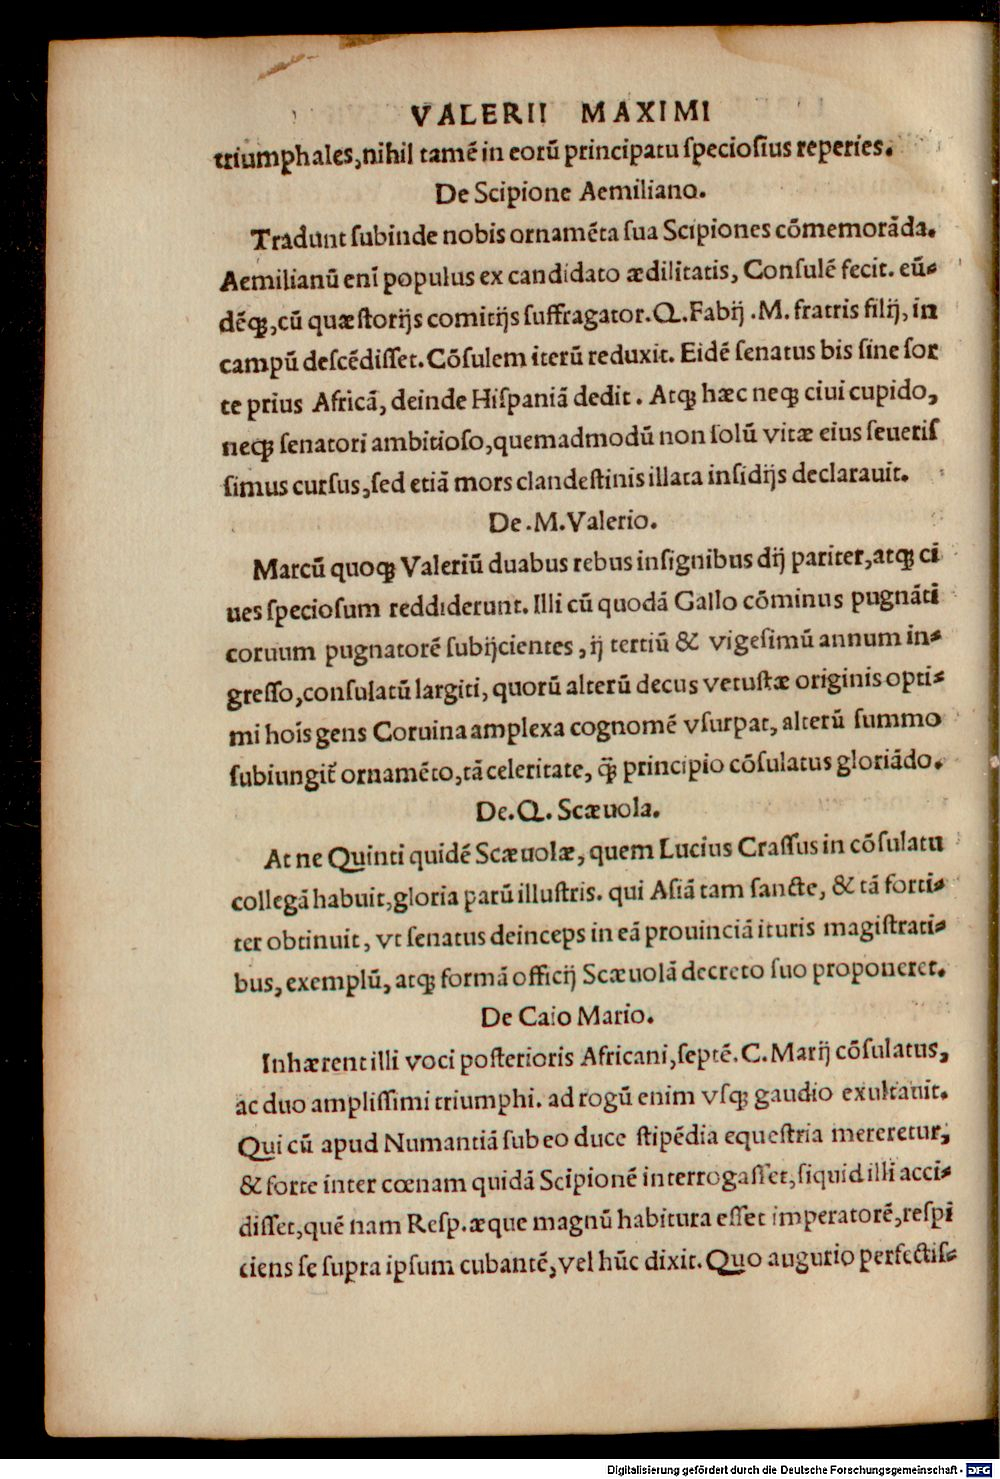 VALERII MAXIMI
triumphales, nihil tamē in eorū principatu ſpecioſius reperies.
De Scipione Aemiliano.
Tradunt ſubinde nobis ornamēta ſua Scipiones cōmemorāda.
Aemilianū enī populus ex candidato ædilitatis, Conſulē fecit. eū-
dēqꝫ, cū quæſtorijs comitijs ſuffragator. Q. Fabij .M. fratris filij, in
campū deſcēdiſſet. Cōſulem iterū reduxit. Eidē ſenatus bis ſine ſor
te prius Africā, deinde Hiſpaniā dedit. Atqꝫ hæc neqꝫ ciui cupido,
neqꝫ ſenatori ambitioſo, quemadmodū non ſolū vitæ eius ſeueriſ
ſimus curſus, ſed etiā mors clandeſtinis illata inſidijs declarauit.
De .M. Valerio.
Marcū quoqꝫ Valeriū duabus rebus inſignibus dij pariter, atqꝫ ci
ues ſpecioſum reddiderunt. Illi cū quodā Gallo cōminus pugnāti
coruum pugnatorē ſubijcientes, ij tertiū & vigeſimū annum in-
greſſo, conſulatū largiti, quorū alterū decus vetuſtæ originis opti-
mi hoīs gens Coruina amplexa cognomē vſurpat, alterū ſummo
ſubiungit̃ ornamēto, tā celeritate, q̄ꝫ principio cōſulatus gloriādo.
De. Q. Scæuola.
At ne Quinti quidē Scæuolæ, quem Lucius Craſſus in cōſulatu
collegā habuit, gloria parū illuſtris. qui Aſiā tam ſancte, & tā forti-
ter obtinuit, vt ſenatus deinceps in eā prouinciā ituris magiſtrati-
bus, exemplū, atqꝫ formā officij Scæuolā decreto ſuo proponeret.
De Caio Mario.
Inhærent illi voci poſterioris Africani, ſeptē. C. Marij cōſulatus,
ac duo ampliſſimi triumphi. ad rogū enim vſqꝫ gaudio exultauit.
Qui cū apud Numantiā ſub eo duce ſtipēdia equeſtria mereretur,
& forte inter cœnam quidā Scipionē interrogaſſet, ſiquid illi acci-
diſſet, quē nam Reſp. æque magnū habitura eſſet imperatorē, reſpi
ciens ſe ſupra ipſum cubantē, vel hūc dixit. Quo augurio perfectiſ-
Digitalisierung gefördert durch die Deutsche Forschungsgemeinschaft - DFG